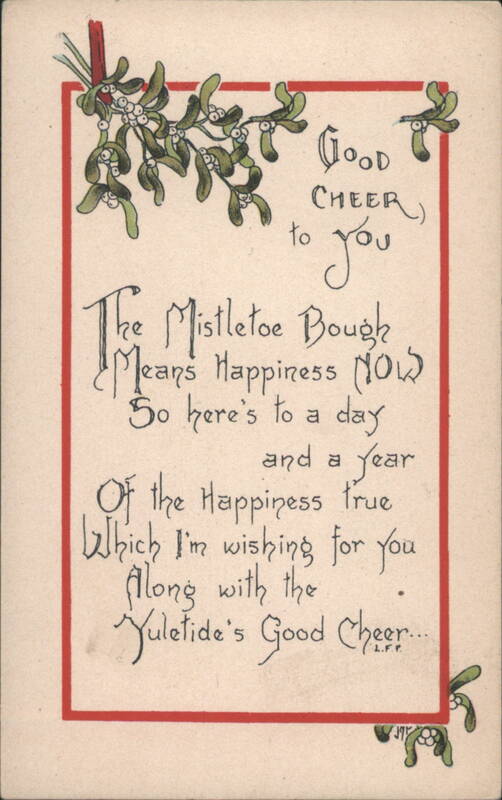 Good
Cheer
to you
The Mistletoe Bough
Means Happiness NOW
So here's to a day
and a year
Of the Happiness true
Which I'm wishing for you
Along with the
Yuletide's Good Cheer...
L.F.P.